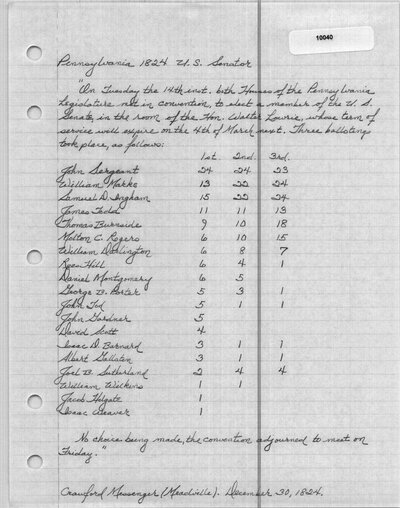 10040
Pennsylvania 1824 U.S. Senator
"On Tuesday the 14th inst. both Houses of the Pennsylvania
Legislature met in convention, to elect a member of the U.S.
Senate, in the room of the Hon. Walter Lowrie, whose term of
service will expire on the 4th of March next. Three ballotings
took place, as follows:
1st. 2nd. 3rd.
John Sergeant 24 24 23
William Marks 13 22 24
Samuel D. Ingham 15 22 24
James Todd 11 11 13
Thomas Burnside 9 10 18
Molton C. Rogers 6 10 15
William Darlington 6 8 7
Rees Hill 6 4 1
Daniel Montgomery 6 5
George B. Porter 5 3 1
John Tod 5 1 1
John Gardner 5
David Scott 4
Isaac D. Barnard 3 1 1
Albert Gallatin 3 1 1
Joel B. Sutherland 2 4 4
William Wilkins 1 1
Jacob Holgate 1
Isaac Weaver 1
No choice being made, the convention adjourned to meet on
Friday."
Crawford Messenger (Meadville). December 30, 1824.